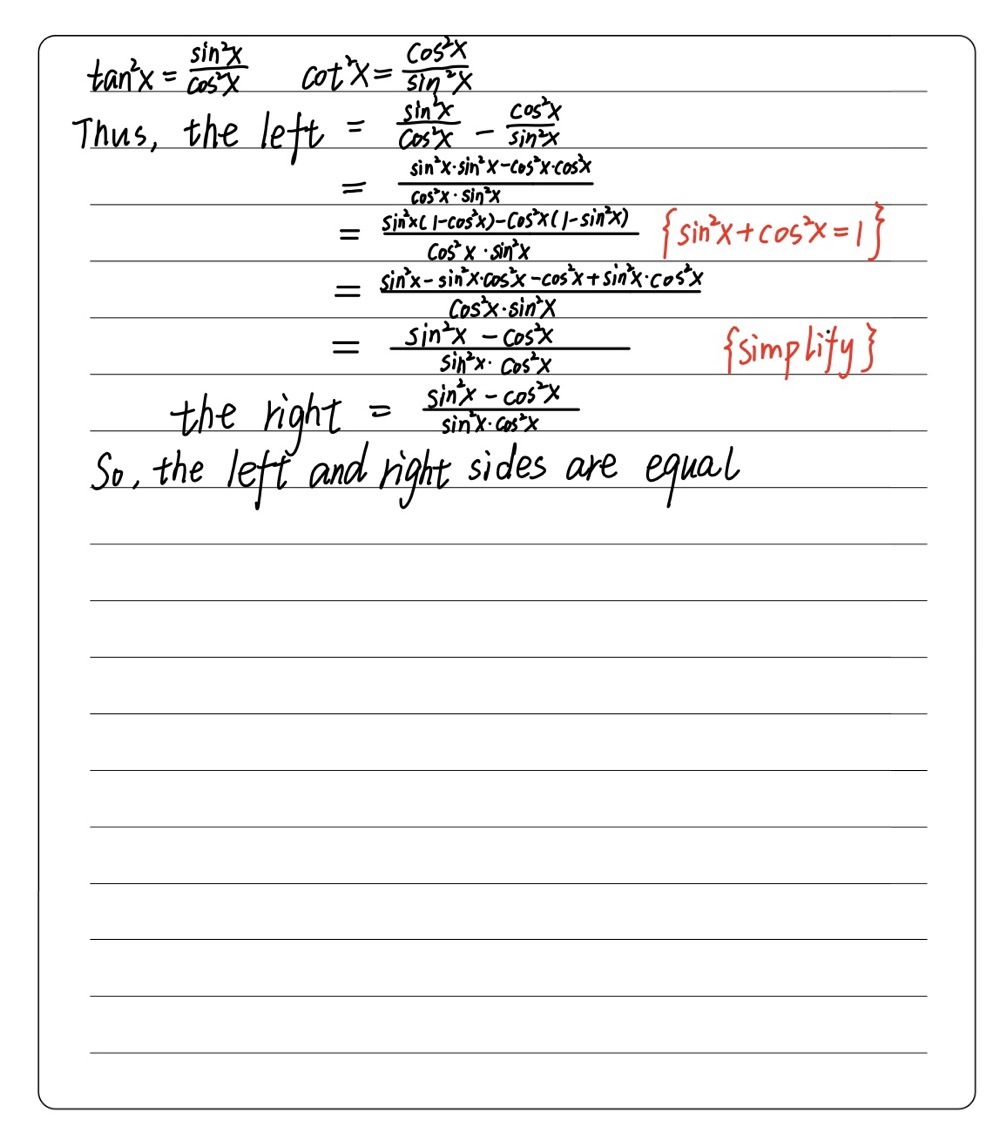 tan²x = sin²x/cos²x cot²x = cos²x/sin²x
Thus, the left = sin²x/cos²x − cos²x/sin²x
= (sin²x·sin²x−cos²x·cos²x)/(cos²x·sin²x)
= (sin²x(1−cos²x)−cos²x(1−sin²x))/(cos²x·sin²x) {sin²x+cos²x=1}
= (sin²x−sin²x·cos²x−cos²x+sin²x·cos²x)/(cos²x·sin²x)
= (sin²x−cos²x)/(sin²x·cos²x) {simplify}
the right = (sin²x−cos²x)/(sin²x·cos²x)
So, the left and right sides are equal